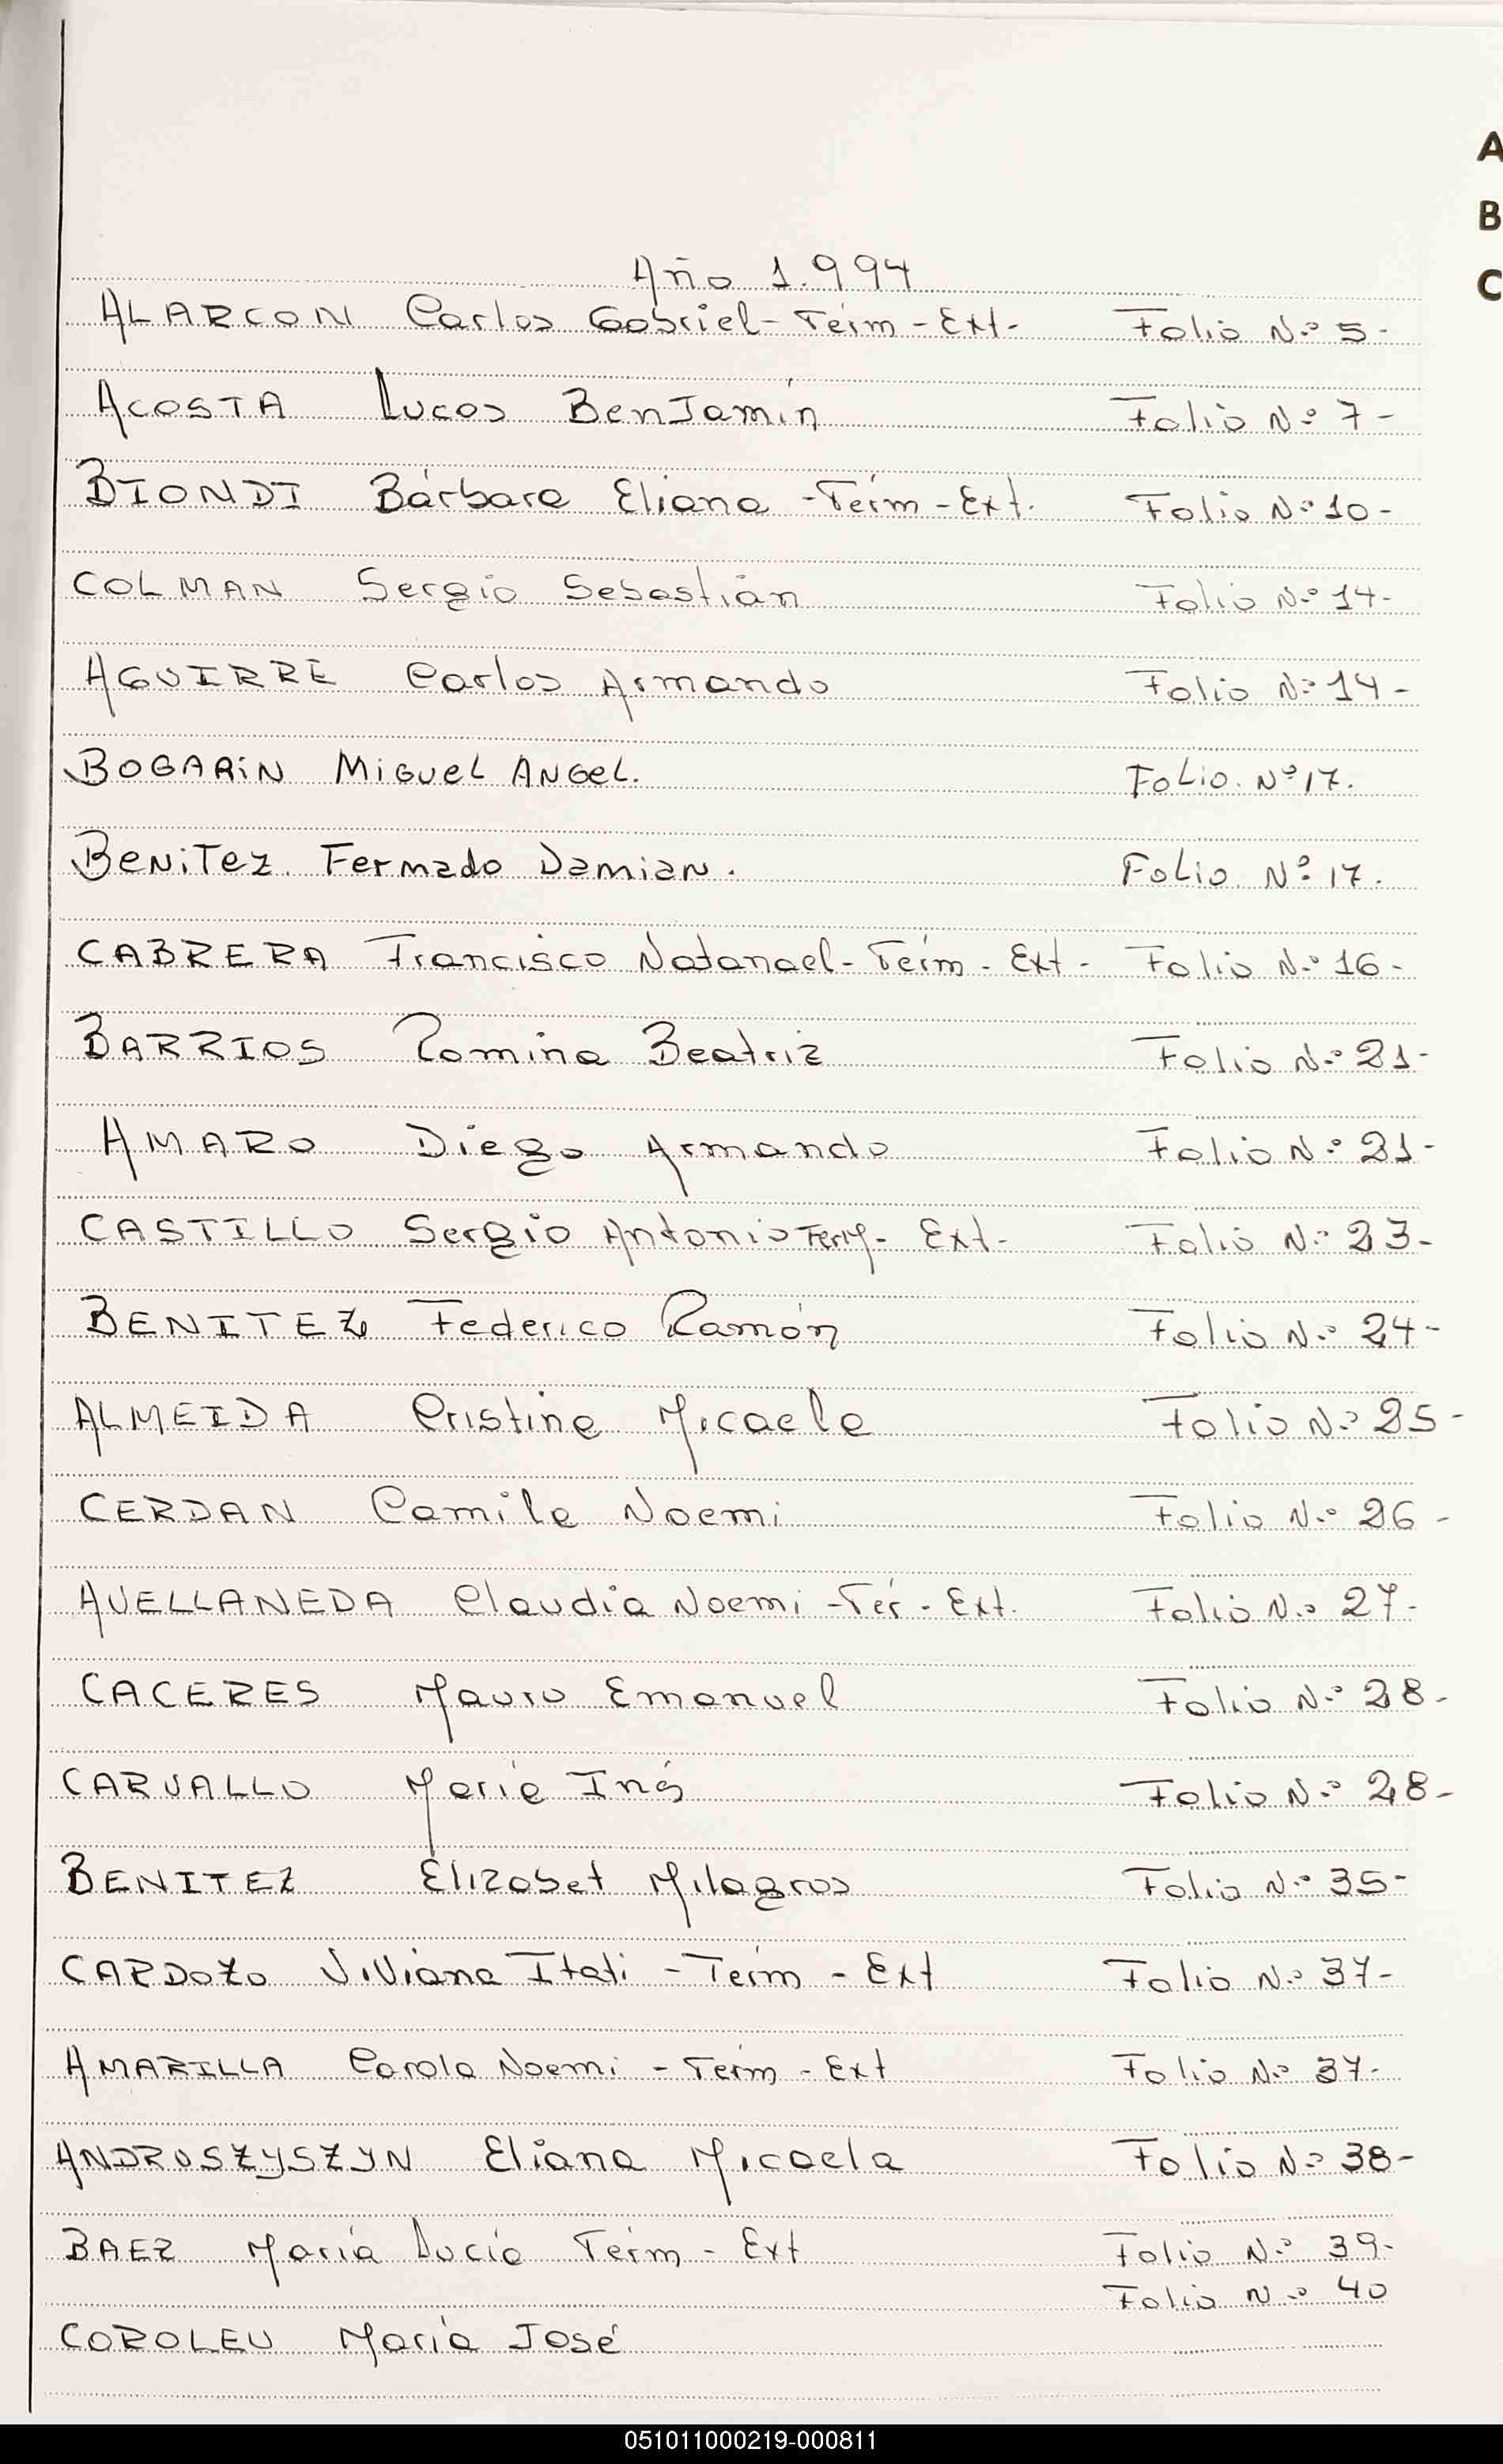 A
B
C
Año 1.994
ALARCON Carlos Gabriel - Térm - Ext - Folio N.º 5 -
ACOSTA Lucas BenJamín Folio N.º 7 -
BIONDI Bárbara Eliana - Térm - Ext. Folio N.º 10 -
COLMAN Sergio Sebastián Folio N.º 14 -
AGUIRRE Carlos Armando Folio N.º 14 -
BOGARiN MiGueL ANGeL. FoLio. Nº 17.
BeNiTez. Fermado DamiaN. FoLio. Nº 17.
CABRERA Francisco Natanael - Térm - Ext - Folio N.º 16 -
BARRIOS Romina Beatriz Folio N.º 21 -
AMARO Diego Armando Folio N.º 21 -
CASTILLO Sergio Antonio Term - Ext - Folio N.º 23 -
BENITEZ Federico Ramón Folio N.º 24 -
ALMEIDA Cristina Micaela Folio N.º 25 -
CERDAN Camila Noemi Folio N.º 26 -
AVELLANEDA Claudia Noemi - Tér - Ext. Folio N.º 27 -
CACERES Mauro Emanuel Folio N.º 28 -
CARVALLO María Inś Folio N.º 28 -
BENITEZ Elizabet Milagros Folio N.º 35 -
CARDOZO Viviana Itati - Térm - Ext Folio N.º 37 -
AMARILLA Carola Noemi - Térm - Ext Folio N.º 37 -
ANDRUSZYSZYN Eliana Micaela Folio N.º 38 -
BAEZ María Lucía Térm - Ext Folio N.º 39 -
Folio N.º 40
COROLEU María José
051011000219-000811